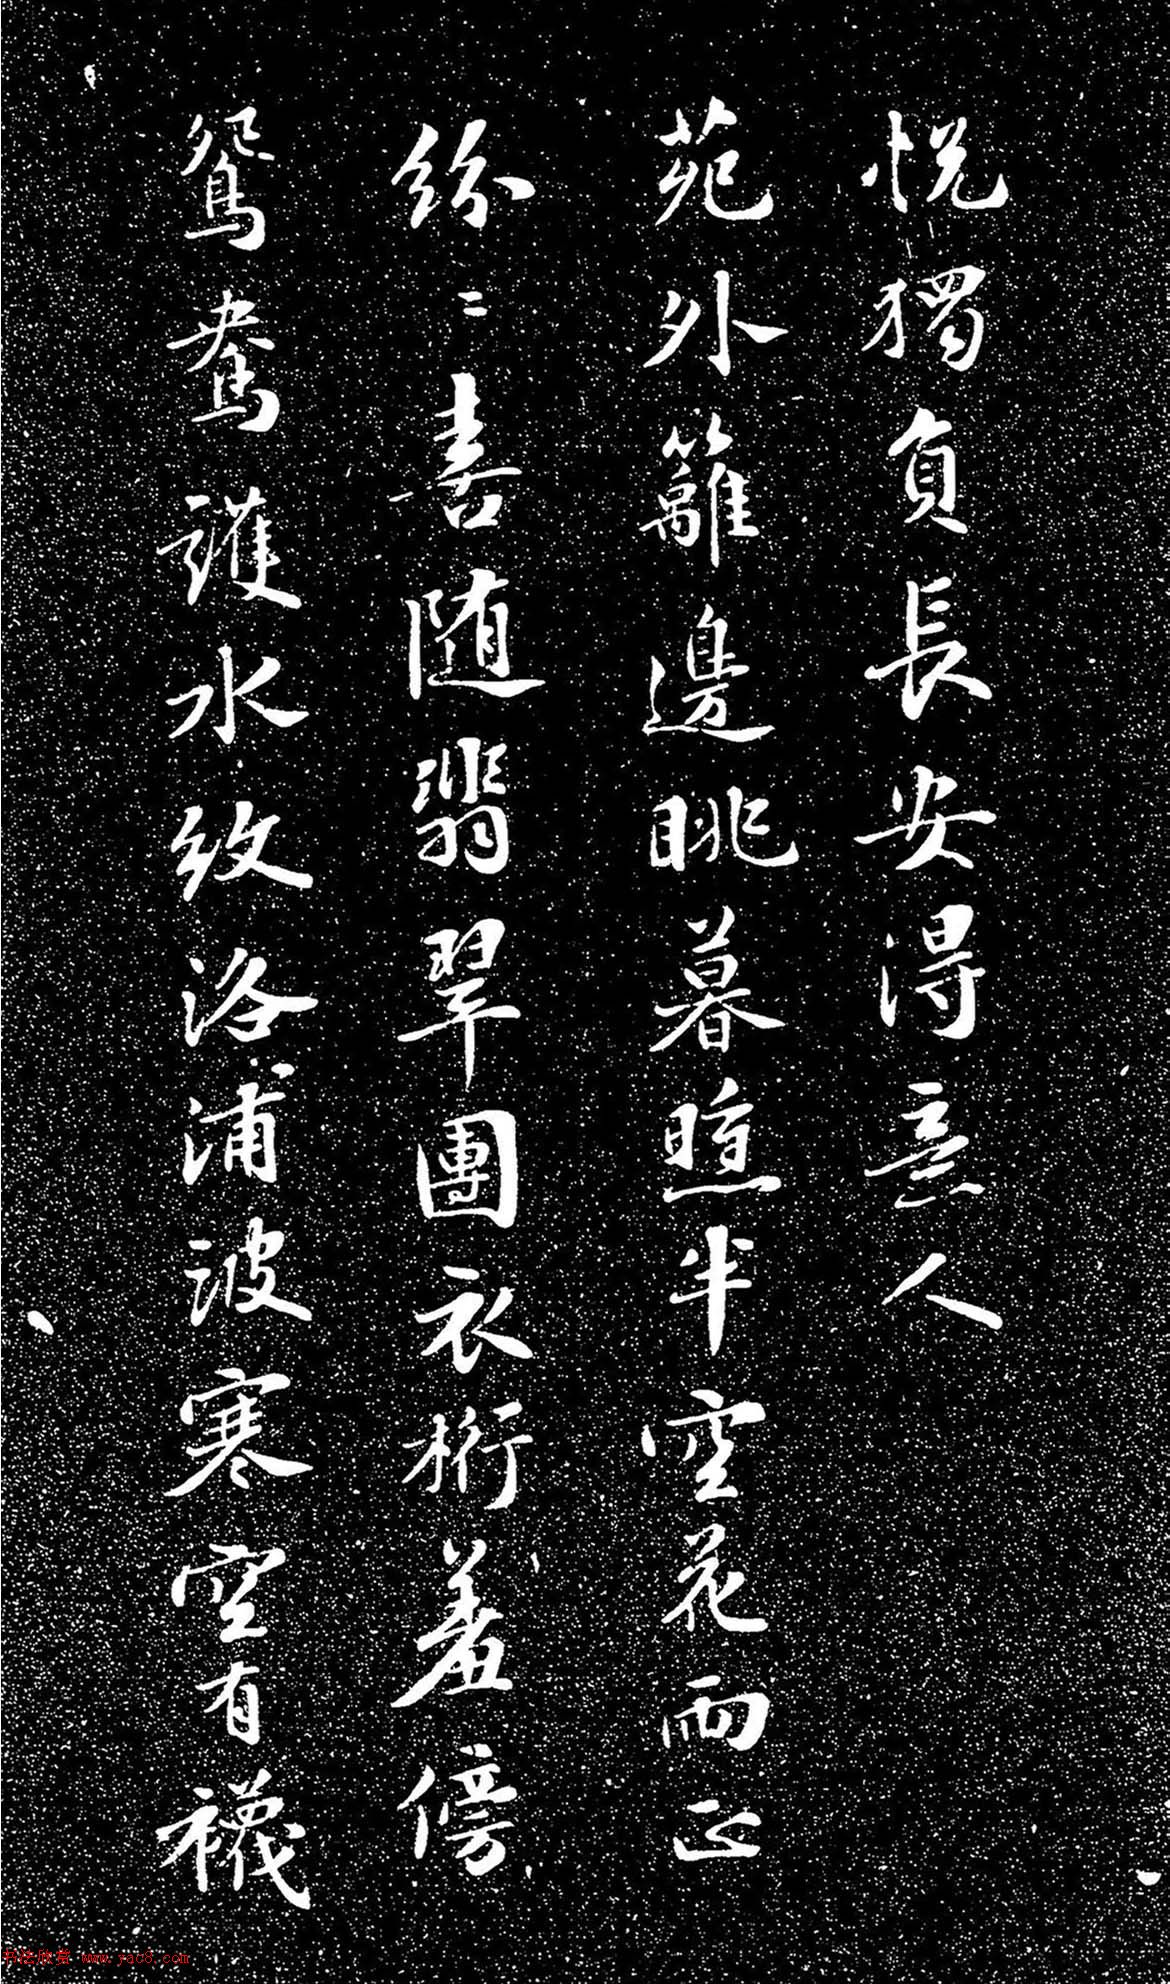 悦獨負長安得意人
苑外籬邊眺暮煦半空花雨正
紛〻喜随翡翠團衣桁羞傍
鴛鴦護水紋洛浦波寒空有襪
书法欣赏 www.yac8.com